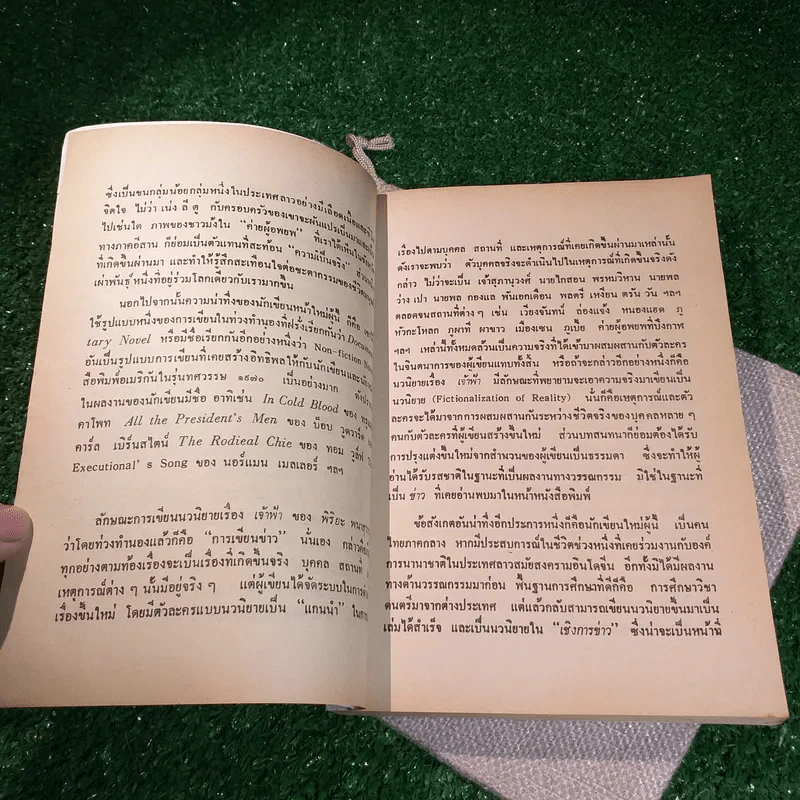 ซึ่งเป็นชนกลุ่มน้อยกลุ่มหนึ่งในประเทศลาวอย่างมีเลือดเนื้อและมี
จิตใจ ไม่ว่า เน่ง ลี ตู กับครอบครัวของเขาจะผันแปรเป็นมาและ
ไปเช่นใด ภาพของชาวม้งใน “ค่ายผู้อพยพ” ที่เราได้เห็นใน
ทางภาคอีสาน ก็ย่อมเป็นตัวแทนที่สะท้อน “ความเป็นจริง”
ที่เกิดขึ้นผ่านมา และทำให้รู้สึกสะเทือนใจต่อชะตากรรมของชีวิต
เผ่าพันธุ์ หนึ่งที่อยู่ร่วมโลกเดียวกับเรามากขึ้น
นอกไปจากนั้นความน่าทึ่งของนักเขียนใหม่ผู้นี้ ก็คือ
ใช้รูปแบบหนึ่งของการเขียนในท่วงทำนองที่ฝรั่งเรียกกันว่า Documen-
tary Novel หรือมีชื่อเรียกกันอีกอย่างหนึ่งว่า Non-fiction
อันเป็นรูปแบบการเขียนที่เคยสร้างอิทธิพลให้กับนักเขียนและ
สือพิมพ์อเมริกันในรุ่นทศวรรษ ๑๙๗๐ เป็นอย่างมาก
ในผลงานของนักเขียนมีชื่อ อาทิเช่น In Cold Blood ของ
คาโพท All the President's Men ของ บ๊อบ วูดวาร์ด
คาร์ล เบิร์นสไตน์ The Rodieal Chie ของ ทอม วูล์ฟ
Executional' s Song ของ นอร์แมน เมลเลอร์ ฯลฯ
ลักษณะการเขียนนวนิยายเรื่อง เจ้าฟ้า ของ พิริยะ
ว่าโดยท่วงทำนองแล้วก็คือ “การเขียนข่าว” นั่นเอง
ทุกอย่างตามท้องเรื่องจะเป็นเรื่องที่เกิดขึ้นจริง บุคคล สถานที่
เหตุการณ์ต่าง ๆ นั้นมีอยู่จริง ๆ แต่ผู้เขียนได้จัดระบบในการ
เรื่องขึ้นใหม่ โดยมีตัวละครแบบนวนิยายเป็น “แกนนำ” ในการ
เรื่องไปตามบุคคล สถานที่ และเหตุการณ์ที่เคยเกิดขึ้นผ่านมาเหล่านั้น
ดังเราจะพบว่า ตัวบุคคลจริงจะดำเนินไปในเหตุการณ์ที่เกิดขึ้นจริงดัง
กล่าว ไม่ว่าจะเป็น เจ้าสุภานุวงศ์ นายไกสอน พรหมวิหาน นายพล
วังเปา นายพล กองแล พันเอกเดือน พลตรี เหงียน ตรัน วัน ฯลฯ
ตลอดจนสถานที่ต่าง ๆ เช่น เวียงจันทน์ ล่องแจ้ง หนองแฮด ภู
หัวกะโหลก ภูผาที ผาขาว เมืองเซน ภูเบี้ย ค่ายผู้อพยพที่บึงกาฬ
ฯลฯ เหล่านี้ทั้งหมดล้วนเป็นความจริงที่ได้เข้ามาผสมผสานกับตัวละคร
ในจินตนาการของผู้เขียนแทบทั้งสิ้น หรือถ้าจะกล่าวอีกอย่างหนึ่งก็คือ
นวนิยายเรื่อง เจ้าฟ้า มีลักษณะที่พยายามจะเอาความจริงมาเขียนเป็น
นวนิยาย (Fictionalization of Reality) นั่นก็คือเหตุการณ์และตัว
ละครจะได้มาจากการผสมผสานกันระหว่างชีวิตจริงของบุคคลหลาย ๆ
คนกับตัวละครที่ผู้เขียนสร้างขึ้นใหม่ ส่วนบทสนทนาก็ย่อมต้องได้รับ
การปรุงแต่งขึ้นใหม่จากสำนวนของผู้เขียนเป็นธรรมดา ซึ่งจะทำให้ผู้
อ่านได้รับรสชาติในฐานะที่เป็นผลงานทางวรรณกรรม มิใช่ในฐานะที่
เป็น ข่าว ที่เคยอ่านพบมาในหน้าหนังสือพิมพ์
ข้อสังเกตอันน่าทึ่งอีกประการหนึ่งก็คือนักเขียนใหม่ผู้นี้ เป็นคน
ไทยภาคกลาง หากมีประสบการณ์ในชีวิตช่วงหนึ่งที่เคยร่วมงานกับองค์
การนานาชาติในประเทศลาวสมัยสงครามอินโดจีน อีกทั้งมิได้มีผลงาน
ทางด้านวรรณกรรมมาก่อน พื้นฐานการศึกษาที่ดีก็คือ การศึกษาวิชา
ดนตรีมาจากต่างประเทศ แต่แล้วกลับสามารถเขียนนวนิยายขึ้นมาเป็น
เล่มได้สำเร็จ และเป็นนวนิยายใน “เชิงการข่าว” ซึ่งน่าจะเป็นหน้าที่